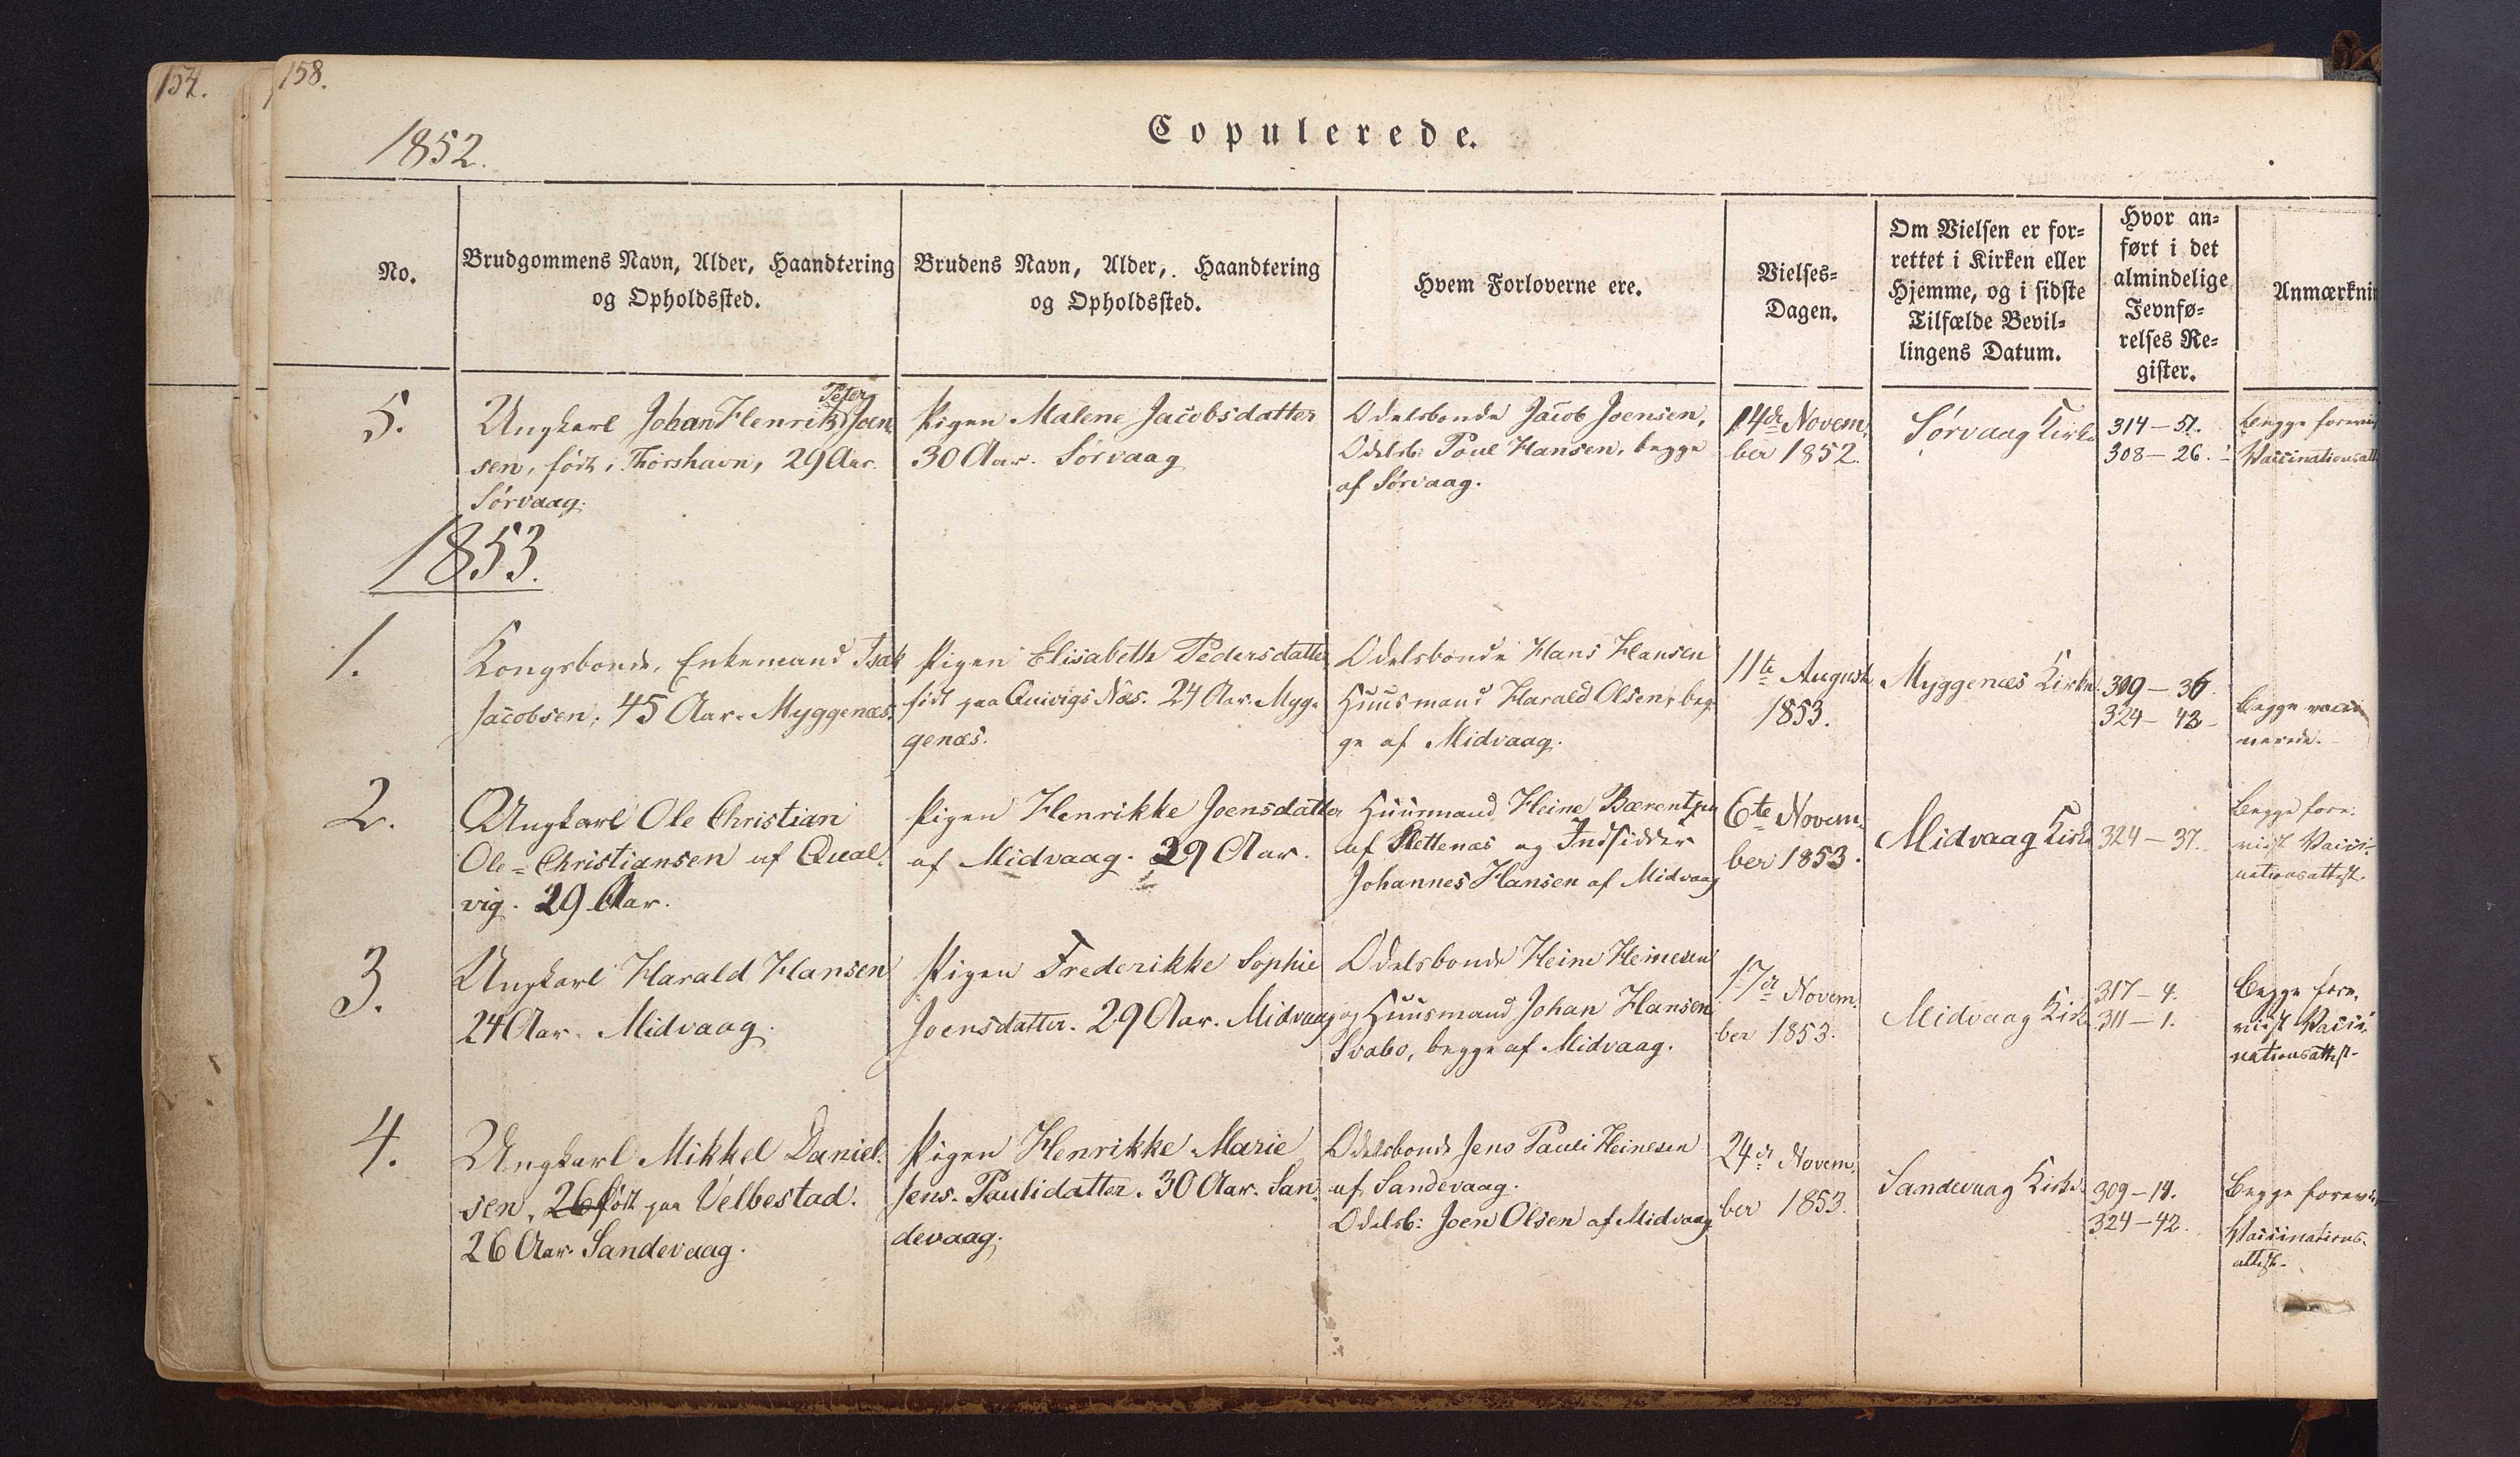 154.
158.
1852.
Copulerede.
No.
Brudgommens Navn, Alder, Haandtering
og Opholdssted.
Brudens Navn, Alder, Haandtering
og Opholdssted.
Hvem Forloverne ere.
Vielses-
Dagen.
Om Vielsen er for-
rettet i Kirken eller
Hjemme, og i sidste
Tilfælde Bevil-
lingens Datum.
Hvor an-
ført i det
almindelige
Jevnfø-
relses Re-
gister.
Anmærknin
5.
Peter
Ungkarl Johan Henrik Joen-
sen, født i Thorshavn, 29 Aar.
Sørvaag.
Pigen Malene Jacobsdatter
30 Aar. Sørvaag
Odelsbonde Jacob Joensen,
Odelsb: Poul Hansen, begge
af Sørvaag.
14de Novem-
ber 1852.
Sørvaag Kirke
314 - 51.
308 - 26.
Begge foreviist
Vaccinationsatt
1853.
1.
Kongsbonde, Enkemand Isak
Jacobsen, 45 Aar. Myggenæs.
Pigen Elisabeth Pedersdatter
født paa Quivigs Næs. 24 Aar. Myg-
genæs.
Odelsbonde Hans Hansen
Huusmand Harald Olsen, beg-
ge af Midvaag.
11te August
1853.
Myggenæs Kirke
309 - 36.
324 - 43 -
Begge vacci-
nerede.
2.
Ungkarl Ole Christian
Ole-Christiansen af Qual-
vig. 29 Aar.
Pigen Henrikke Joensdatter
af Midvaag. 29 Aar.
Huusmand Heine Bærentsen
af Slettenæs og Indsidder
Johannes Hansen af Midvaag
6te Novem-
ber 1853.
Midvaag Kirke
324 - 37.
Begge fore-
viist Vacci-
nationsattest.
3.
Ungkarl Harald Hansen
24 Aar. Midvaag.
Pigen Frederikke Sophie
Joensdatter. 29 Aar. Midvaag
Odelsbonde Heine Heinesen
og Huusmand Johan Hansen
Svabo, begge af Midvaag.
17de Novem-
ber 1853.
Midvaag Kirke
317 - 4.
311 - 1.
Begge fore-
viist Vacci-
nationsattest.
4.
Ungkarl Mikkel Daniel-
sen, 26 født paa Velbestad.
26 Aar. Sandevaag.
Pigen Henrikke Marie
Jens-Paulidatter. 30 Aar. San-
devaag.
Odelsbonde Jens Pauli Heinesen
af Sandevaag.
Odelsb: Joen Olsen af Midvaag
24de Novem-
ber 1853.
Sandevaag Kirke
309 - 14.
324 - 42.
Begge foreviist
Vaccinations-
attest.